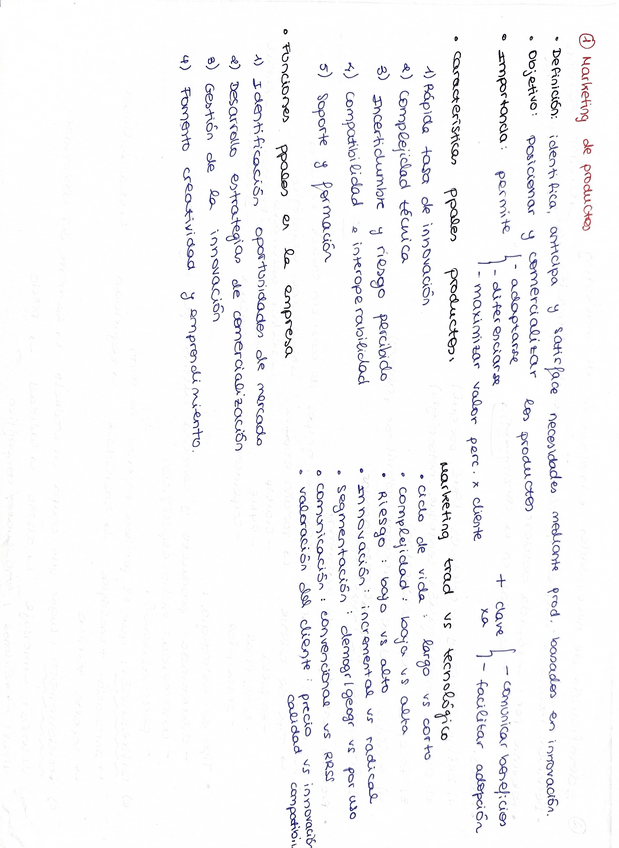 ① Marketing de productos
• Definición: identifica, anticipa y satisface necesidades mediante prod. basados en innovación.
• Objetivo: posicionar y comercializar los productos
• Importancia: permite { - adaptarse
- diferenciarse
- maximizar valor perc. x cliente
+ clave xa { - comunicar beneficios
- facilitar adopción
• Características ppales productos:
1) Rápida tasa de innovación
2) Complejidad técnica
3) Incertidumbre y riesgo percibido
4) Compatibilidad e interoperabilidad
5) Soporte y formación
Marketing trad vs tecnológico
• Ciclo de vida: largo vs corto
• Complejidad: baja vs alta
• Riesgo: bajo vs alto
• Innovación: incremental vs radical
• Segmentación: demogr/geogr vs por uso
• Comunicación: convencional vs RRSS
• Valoración del cliente: precio vs innovación
calidad compatibili
• Funciones ppales en la empresa
1) Identificación oportunidades de mercado
2) Desarrollo estrategias de comercialización
3) Gestión de la innovación
4) Fomento creatividad y emprendimiento.